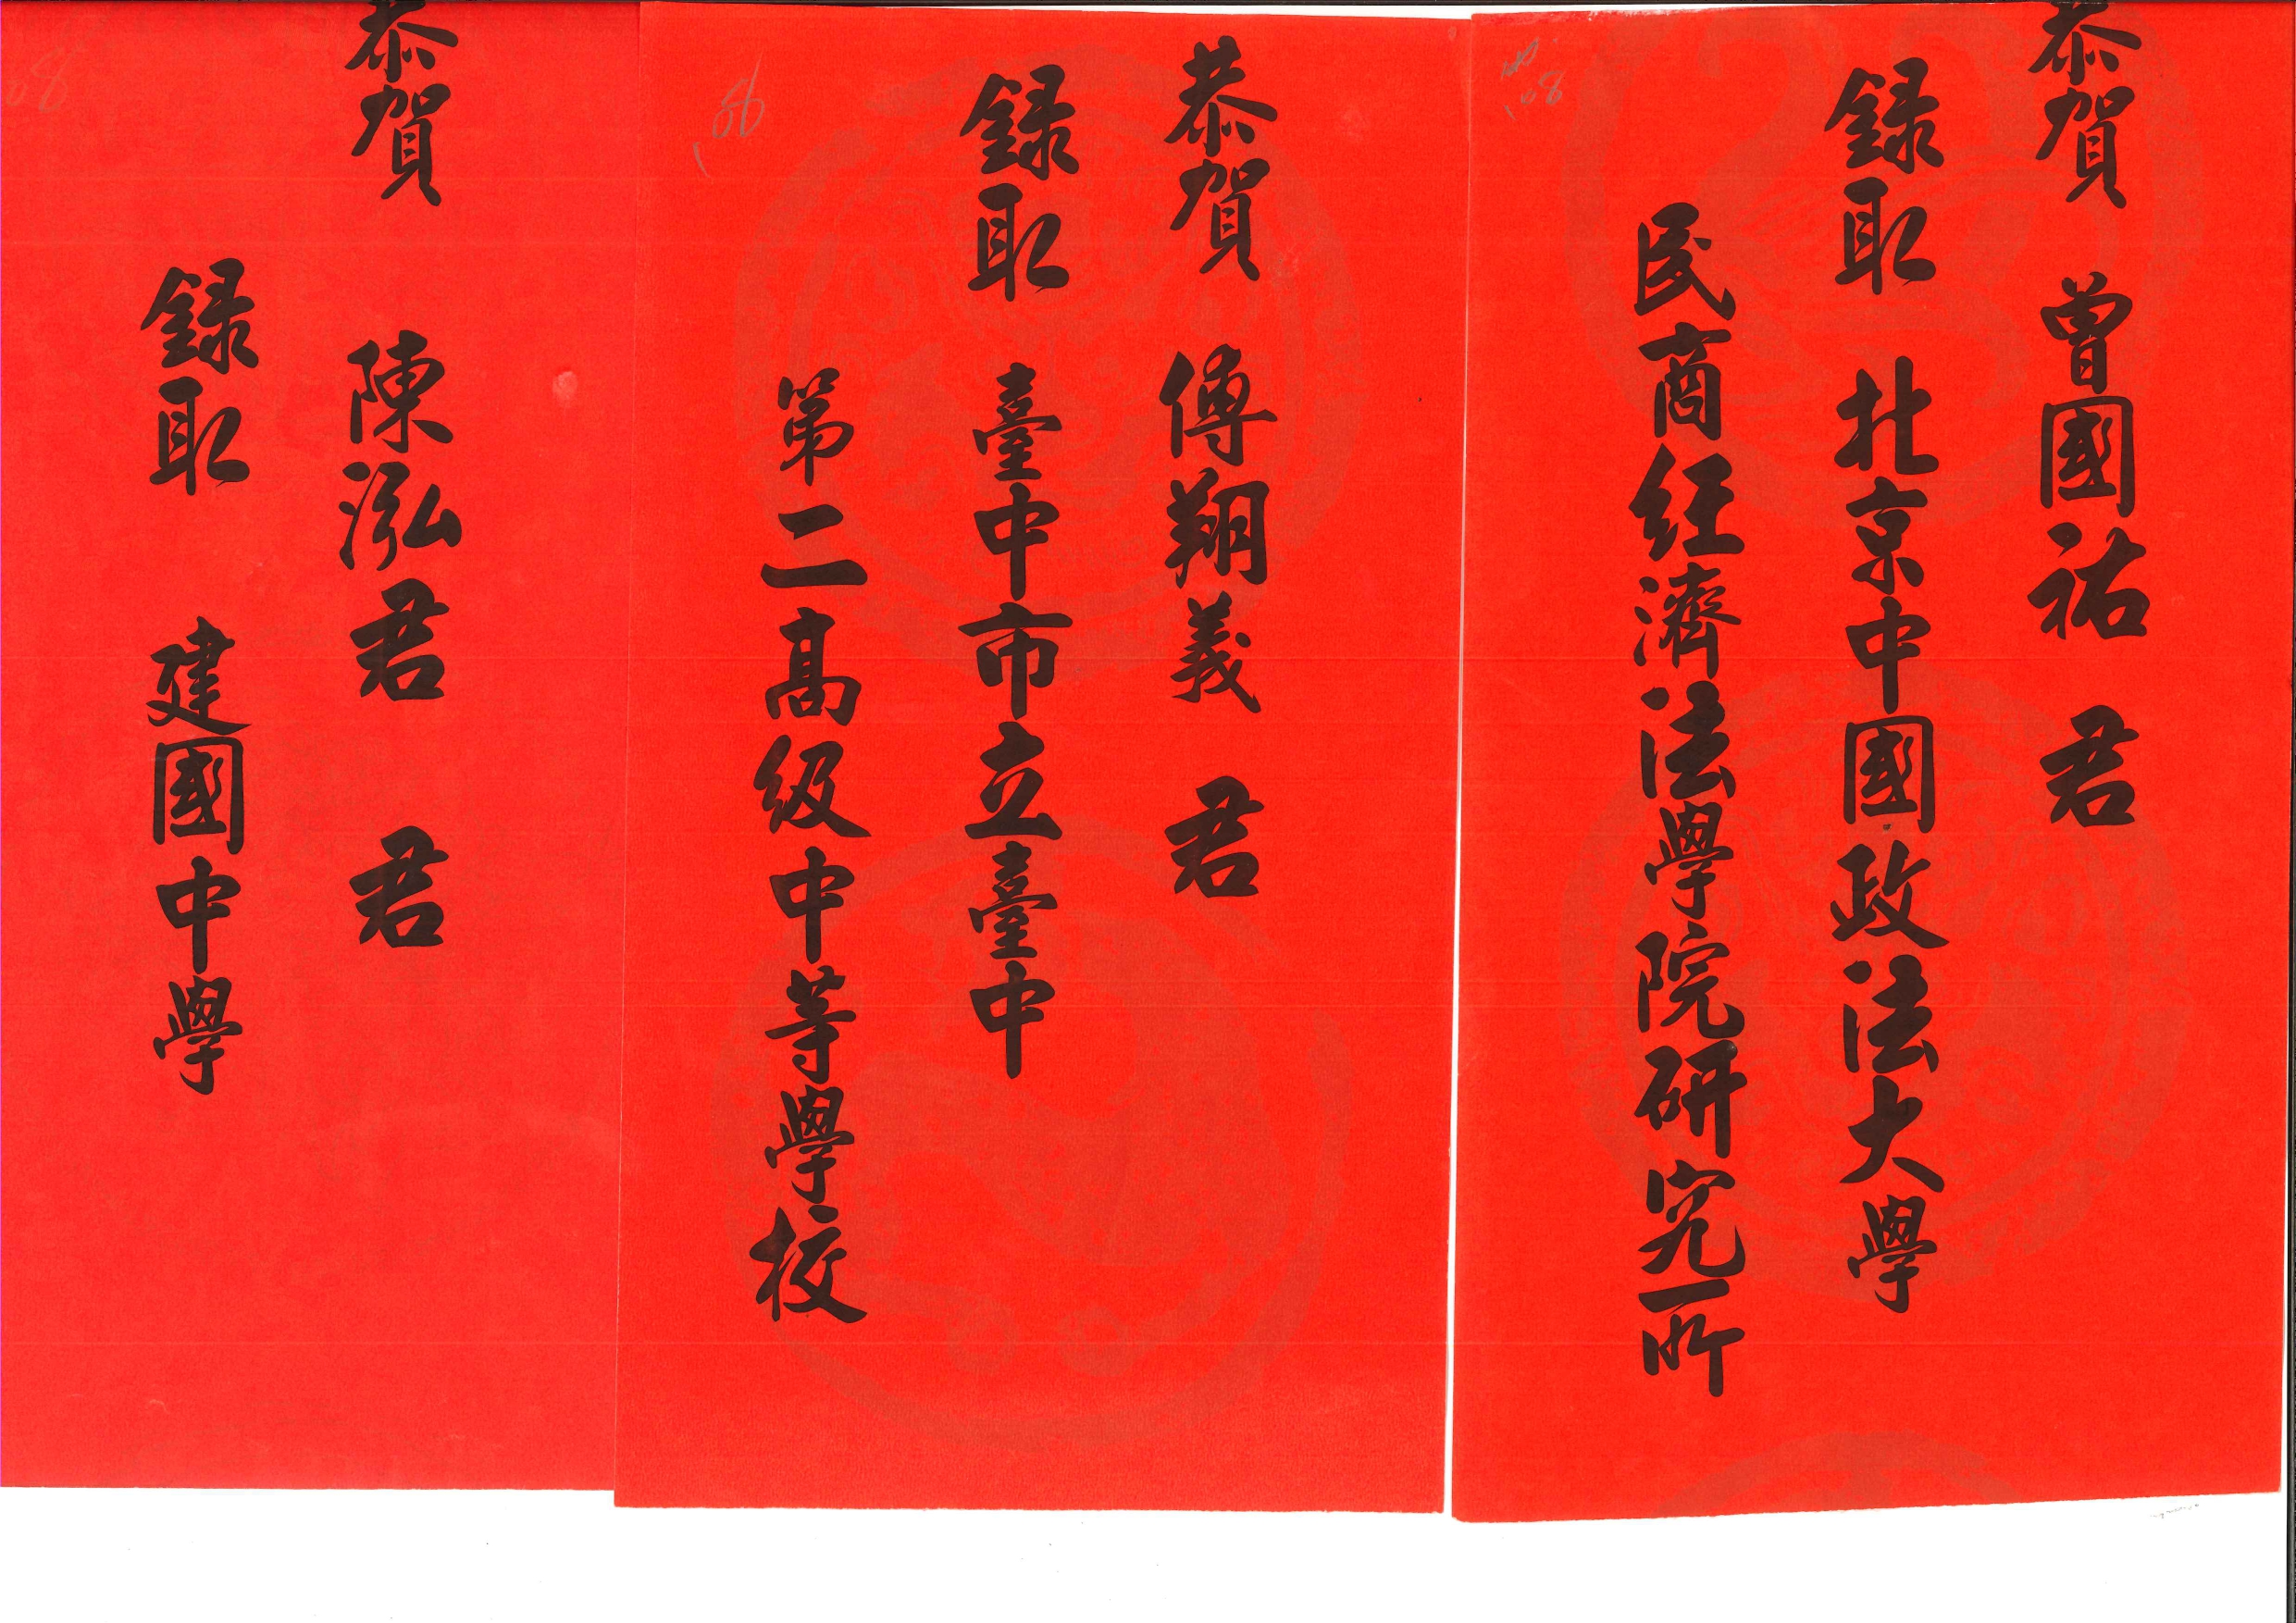 恭賀 曾國祐 君
録取 北京中國政法大學
民商經濟法學院研究所
108
恭賀 傅翔義 君
録取 臺中市立臺中
第二高級中等學校
恭賀 陳泓君 君
録取 建國中學
08